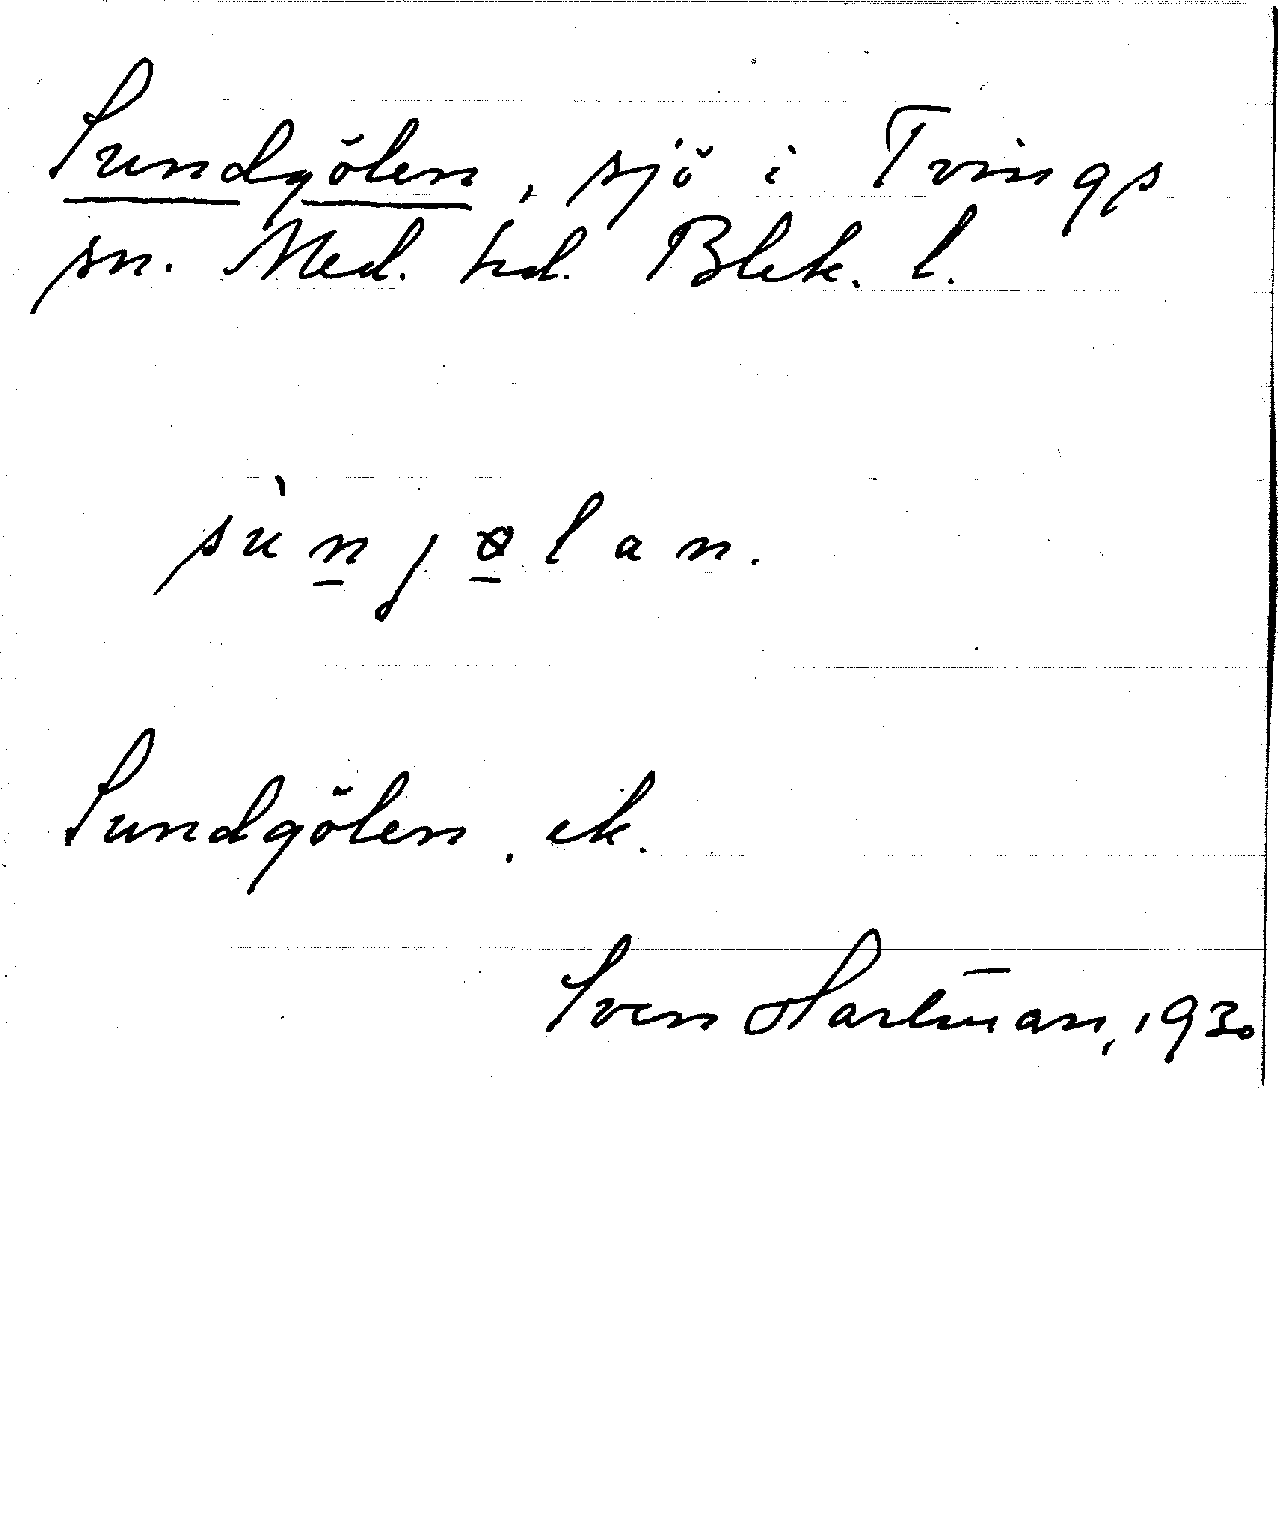 Sundgölen, sjö i Tvings
sn. Med. hd. Blek. l.
sùn̲jø̲lan.
Sundgölen, ek.
Sven Hartman, 1930